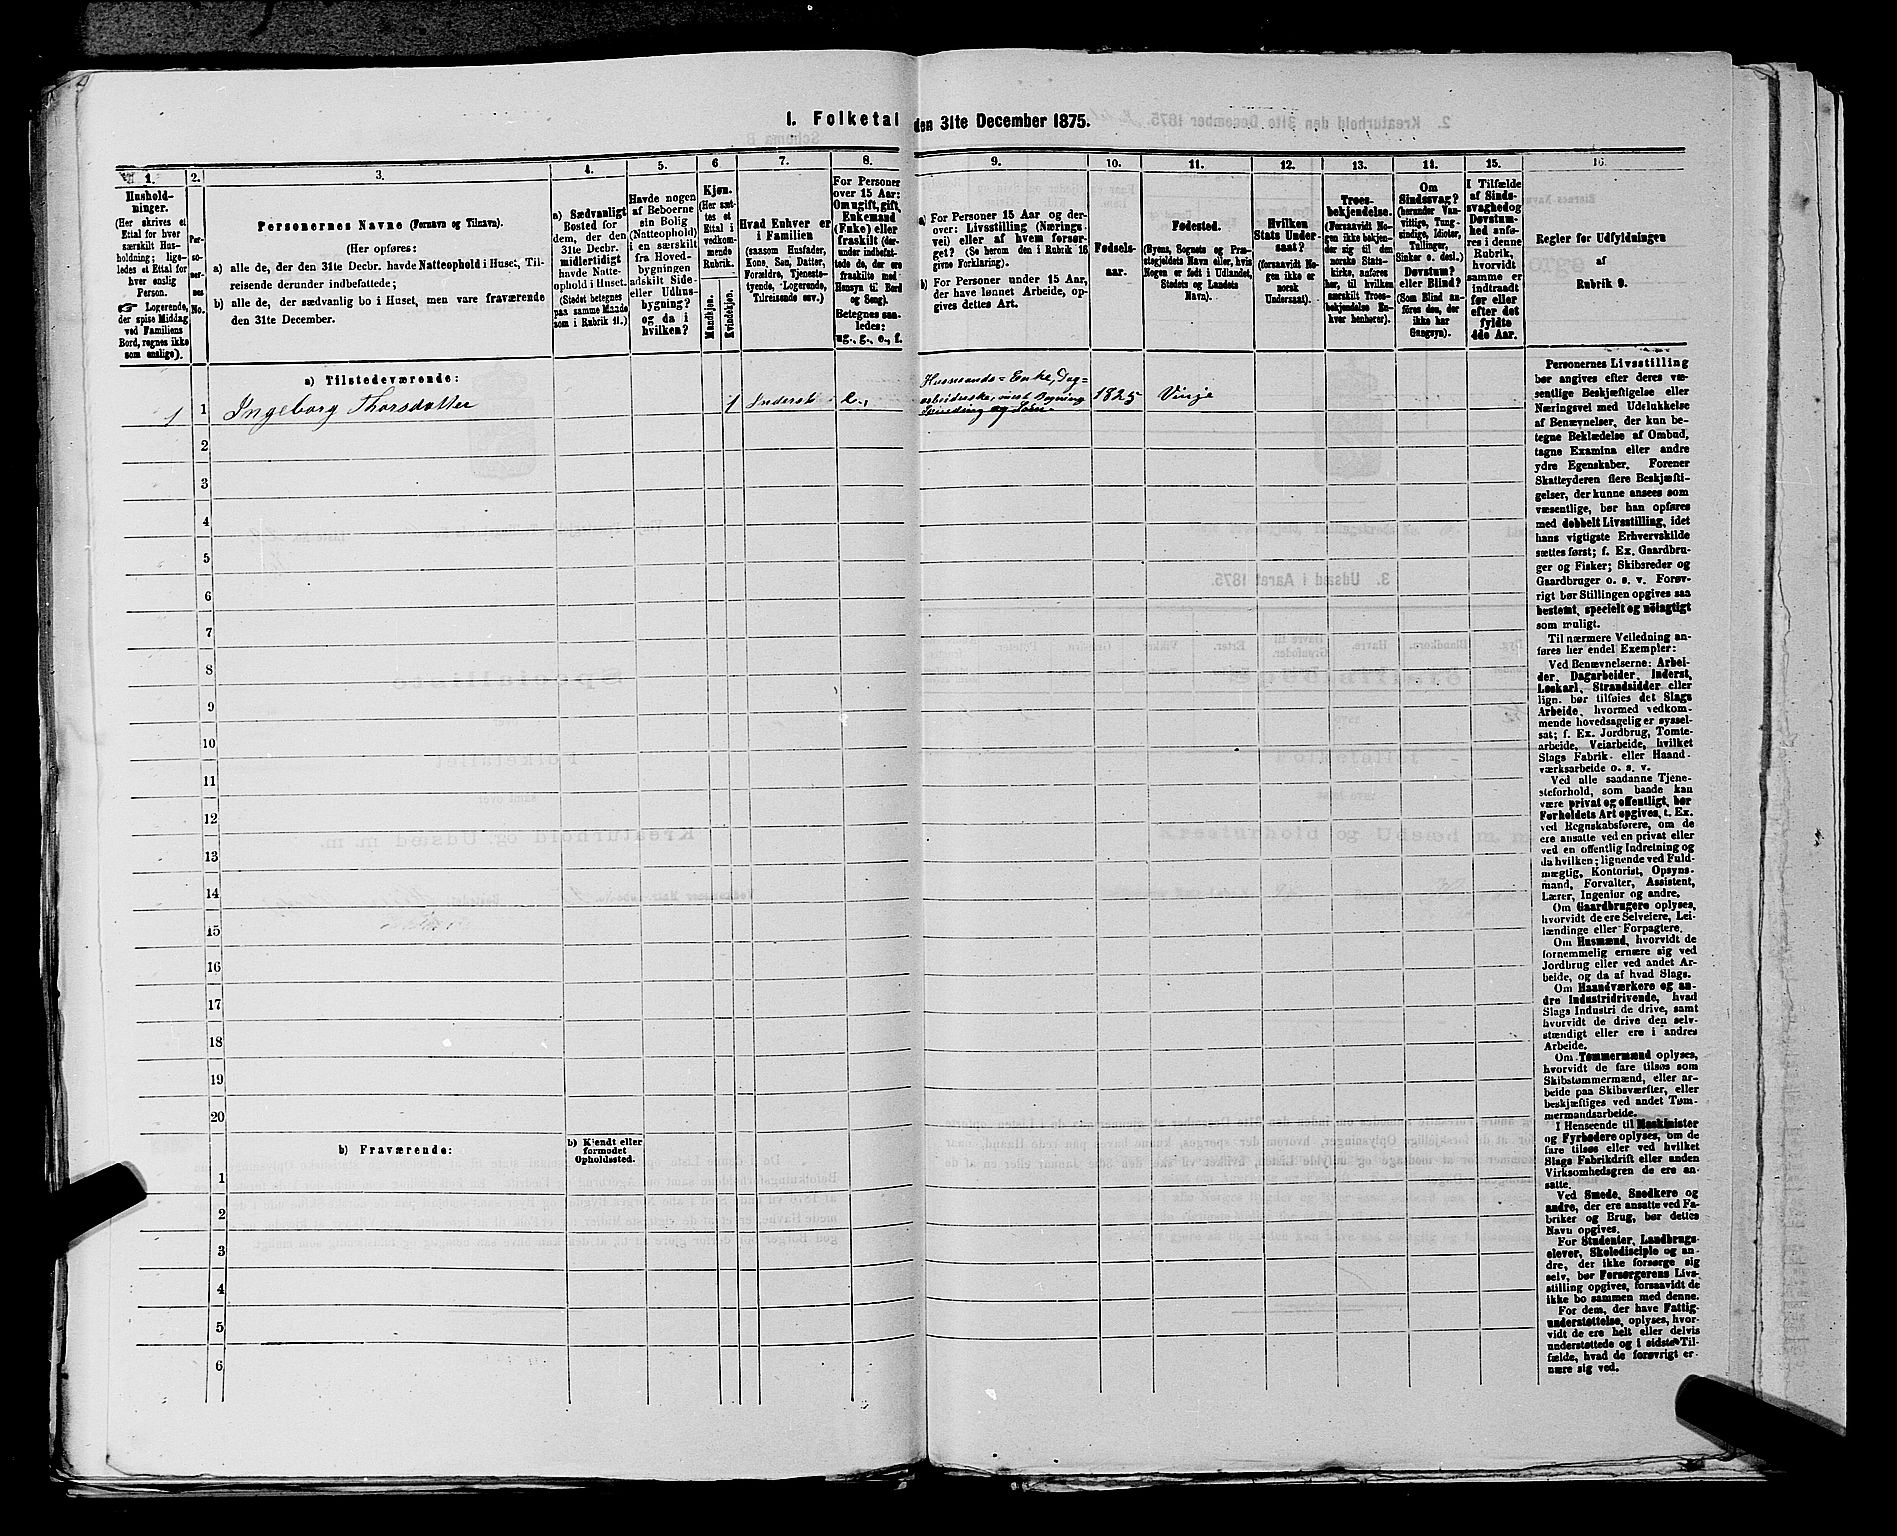 I. Folketal den 31te December 1875.
1. 2. 3. 4. 5. 6 7. 8. 9. 10. 11. 12. 13. 14. 15. 16.
Hushold-
ninger.
(Her skrives et
Ettal for hver
særskilt Hus-
holdning; lige-
ledes et Ettal for
hver enslig
Person.
☞ Logerende,
der spise Middag
ved Familiens
Bord, regnes ikke
som enslige).
Per-
so-
ner-
nes
No.
Personernes Navne (Fornavn og Tilnavn).
(Her opføres:
a) alle de, der den 31te Decbr. havde Natteophold i Huset, Til-
reisende derunder indbefattede;
b) alle de, der sædvanlig bo i Huset, men vare fraværende
den 31te December.
a) Sædvanligt
Bosted for
dem, der den
31te Decbr.
midlertidigt
havde Natte-
ophold i Huset.
(Stedet betegnes
paa samme Maade
som i Rubrik 11.)
Havde nogen
af Beboerne
sin Bolig
(Natteophold)
i en særskilt
fra Hoved-
bygningen
adskilt Side-
eller Udhus-
bygning?
og da i
hvilken?
Kjøn.
(Her sæt-
tes et
Ettal i
vedkom-
mende
Rubrik.
Mandkjøn.
Kvindekjøn.
Hvad Enhver er
i Familien
(saasom Husfader,
Kone, Søn, Datter,
Forældre, Tjeneste-
tyende, Logerende,
Tilreisende osv.)
For Personer
over 15 Aar:
Om ugift, gift,
Enkemand
(Enke) eller
fraskilt (der-
under indbefat-
tede de, der ere
fraskilte med
Hensyn til Bord
og Seng).
Betegnes saa-
ledes:
ug., g., e., f.
a) For Personer 15 Aar og der-
over: Livsstilling (Nærings-
vei) eller af hvem forsør-
get? (Se herom den i Rubrik 16
givne Forklaring).
b) For Personer under 15 Aar,
der have lønnet Arbeide, op-
gives dettes Art.
Fødsels-
aar.
Fødested.
(Byens, Sognets og Præ-
stegjeldets Navn eller, hvis
Nogen er født i Udlandet,
Stedets og Landets
Navn).
Hvilken
Stats Under-
saat?
(forsaavidt No-
gen ikke er
norsk
Undersaat).
Troes-
bekjendelse.
(Forsaavidt No-
gen ikke bekjen-
der sig til den
norske Stats-
kirke, anføres
her, til hvilken
særskilt Troes-
bekjendelse En-
hver henhører).
Om
Sindssvag?
(herunder Van-
vittige, Tung-
sindige, Idioter,
Tullinger,
Sinker o. desl.)
Døvstum?
eller Blind?
(Som Blind an-
føres den, der
ikke har
Gangsyn).
I Tilfælde
af Sinds-
svaghed og
Døvstum-
hed anfø-
res i denne
Rubrik,
hvorvidt
samme er
indtraadt
før eller
efter det
fyldte
4de Aar.
Regler for Udfyldningen
af
Rubrik 9.
a) Tilstedeværende:
1 1 Ingeborg Thorsdatter 1 Inderst e.,
Husmands=Enke, Dag=
arbeiderske, mest Bygning
Spinding og Søm
1825 Vinje
2
3
4
5
6
7
8
9
10
11
12
13
14
15
16
17
18
19
20
b) Fraværende:
b) Kjendt eller
formodet
Opholdssted.
1
2
3
4
5
6
Personernes Livsstilling
bør angives efter deres væ-
sentlige Beskjæftigelse eller
Næringsvei med Udelukkelse
af Benævnelser, der kun be-
tegne Beklædelse af Ombud,
tagne Examina eller andre
ydre Egenskaber. Forener
Skatteyderen flere Beskjæfti-
gelser, der kunne ansees som
væsentlige, bør han opføres
med dobbelt Livsstilling, idet
hans vigtigste Erhvervskilde
sættes først; f. Ex. Gaardbru-
ger og Fisker; Skibsreder og
Gaardbruger o. s. v. Forøv-
rigt bør Stillingen opgives saa
bestemt, specielt og nöiagtigt
som muligt.
Til nærmere Veiledning an-
føres her endel Exempler:
Ved Benævnelserne: Arbei-
der, Dagarbeider, Inderst,
Løskarl, Strandsidder eller
lign. bør tilføies det Slags
Arbeide, hvormed vedkom-
mende hovedsagelig er syssel-
sat; f. Ex. Jordbrug, Tomte-
arbeide, Veiarbeide, hvilket
Slags Fabrik- eller Haand-
værksarbeide o. s. v.
Ved alle saadanne Tjene-
steforhold, som baade kan
være privat og offentligt, bør
Forholdets Art opgives, t. Ex.
ved Regnskabsførere, om de
ere ansatte ved en privat eller
ved en offentlig Indretning og
da hvilken; lignende ved Fuld-
mægtig, Kontorist, Opsyns-
mand, Forvalter, Assistent,
Lærer, Ingeniør og andre.
Om Gaardbrugere oplyses,
hvorvidt de ere Selveiere, Lei-
lændinge eller Forpagtere.
Om Husmænd, hvorvidt de
fornemmelig ernære sig ved
Jordbrug eller ved andet Ar-
beide, og da af hvad Slags.
Om Haandværkere og an-
dre Industridrivende, hvad
Slags Industri de drive, samt
hvorvidt de drive den selv-
stændigt eller ere i andres
Arbeide.
Om Tømmermænd oplyses,
hvorvidt de fare tilsøs som
Skibstømmermænd, eller ar-
beide paa Skibsværfter, eller
beskjæftiges ved andet Tøm-
mermandsarbeide.
I Henseende til Maskinister
og Fyrbødere oplyses, om de
fare tilsøs eller ved hvilket
Slags Fabrikdrift eller anden
Virksomhedsgren de ere an-
satte.
Ved Smede, Snedkere og
andre, der ere ansatte ved Fa-
briker og Brug, bør dettes
Navn opgives.
For Studenter, Landbrugs-
elever, Skoledisciple og an-
dre, der ikke forsørge sig
selv, bør Forsørgerens Livs-
stilling opgives, forsaavidt de
ikke bo sammen med denne.
For dem, der have Fattig-
understøttelse, oplyses, hvor-
vidt de ere helt eller delvis
understøttede og i sidste Til-
fælde, hvad de forøvrigt er-
nære sig ved.